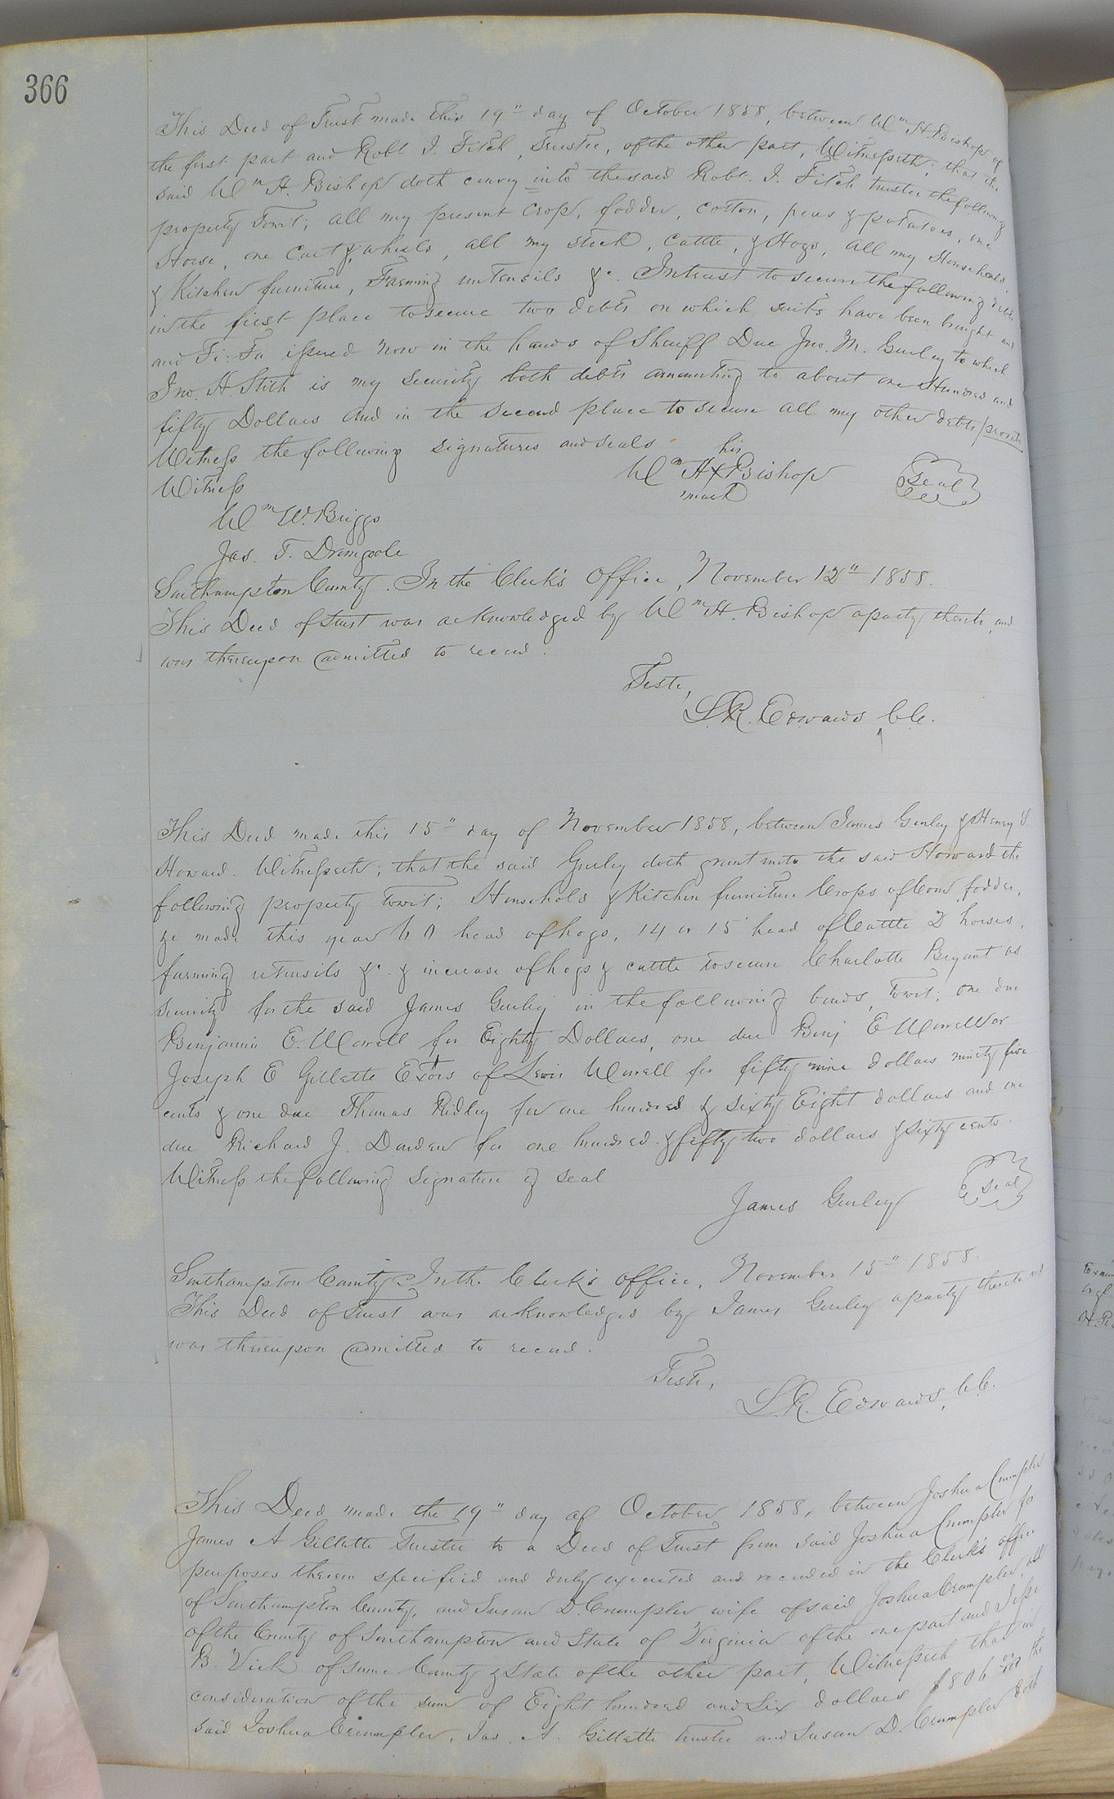 366
This Deed of Trust made this 19" day of October 1858, between Wm H. Bishop of
the first part and Robt I. Fitch, Trustee, of the other part, Witnesseth; that the
said Wm H. Bishop doth convey into the said Robt. I. Fitch trustee the following
property towit; all my present crop, fodder, cotton, peas & potatoes, one
Horse, one cart & wheels, all my stock, cattle, & Hogs, all my Household
& Kitchen furniture, Farming untensils &c. Intrust to secure the following debts
in the first place to secure two debts on which suits have been brought and
and Fi: Fa issued now in the hands of Sheriff Due Jno. M. Gurley to which
Jno. H Stith is my security both debts amounting to about one Hundred and
fifty Dollars and in the second place to secure all my other debts
Witness the following signatures and seals
his
Wm H X Bishop Seal
mark
Witness
Wm W. Briggs
Jas. T. Drangoole
Southampton County. In the Clerk's Office, November 12" 1858.
This Deed of Trust was acknowledged by Wm H. Bishop a party thereto, and
was thereupon admitted to record.
Teste,
L. R. Edwards, C.C.
This Deed made this 15" day of November 1858, between James Gurley & Henry
Howard. Witnesseth; that the said Gurley doth grant unto the said Howard the
following property towit; Household & Kitchen furniture Crops of Corn, fodder,
&c made this year 60 head of hogs, 14 or 15 head of Cattle 2 horses,
farming utensils &c. & increase of hogs & cattle to secure Charlotte Bryant as
security for the said James Gurley in the following bonds, towit; one due
Benjamin E. Worrell for Eighty Dollars, one due Benj E Worrell or
Joseph E Gillette Extors of Lewis Worrell for fifty nine dollars ninety five
cents & one due Thomas Ridley for one hundred & sixty Eight dollars and one
due Richard J. Darden for one hundred & fifty two dollars & sixty cents.
Witness the following signature & seal
James Gurley Seal
Southampton County. In the Clerk's office, November 15" 1858.
This Deed of Trust was acknowledged by James Gurley a party thereto and
was thereupon admitted to record.
Teste,
L. R. Edwards, C.C.
This Deed made the 19" day of October 1858, between Joshua Crumpler
James A Gillette Trustee to a Deed of Trust from said Joshua Crumpler for
purposes therein specified and duly executed and recorded in the Clerk's office
of Southampton County, and Susan D. Crumpler wife of said Joshua Crumpler, all
of the County of Southampton and State of Virginia of the one part and Jesse
B. Vick of same County & State of the other part, Witnesseth that in
consideration of the sum of Eight hundred and Six dollars $806 the
said Joshua Crumpler, Jas. A. Gillette trustee and Susan D. Crumpler doth